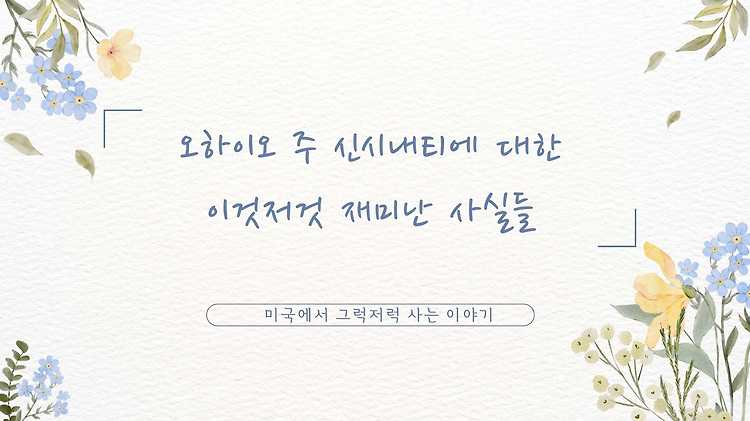 오하이오 주 신시내티에 대한
이것저것 재미난 사실들
미국에서 그럭저럭 사는 이야기